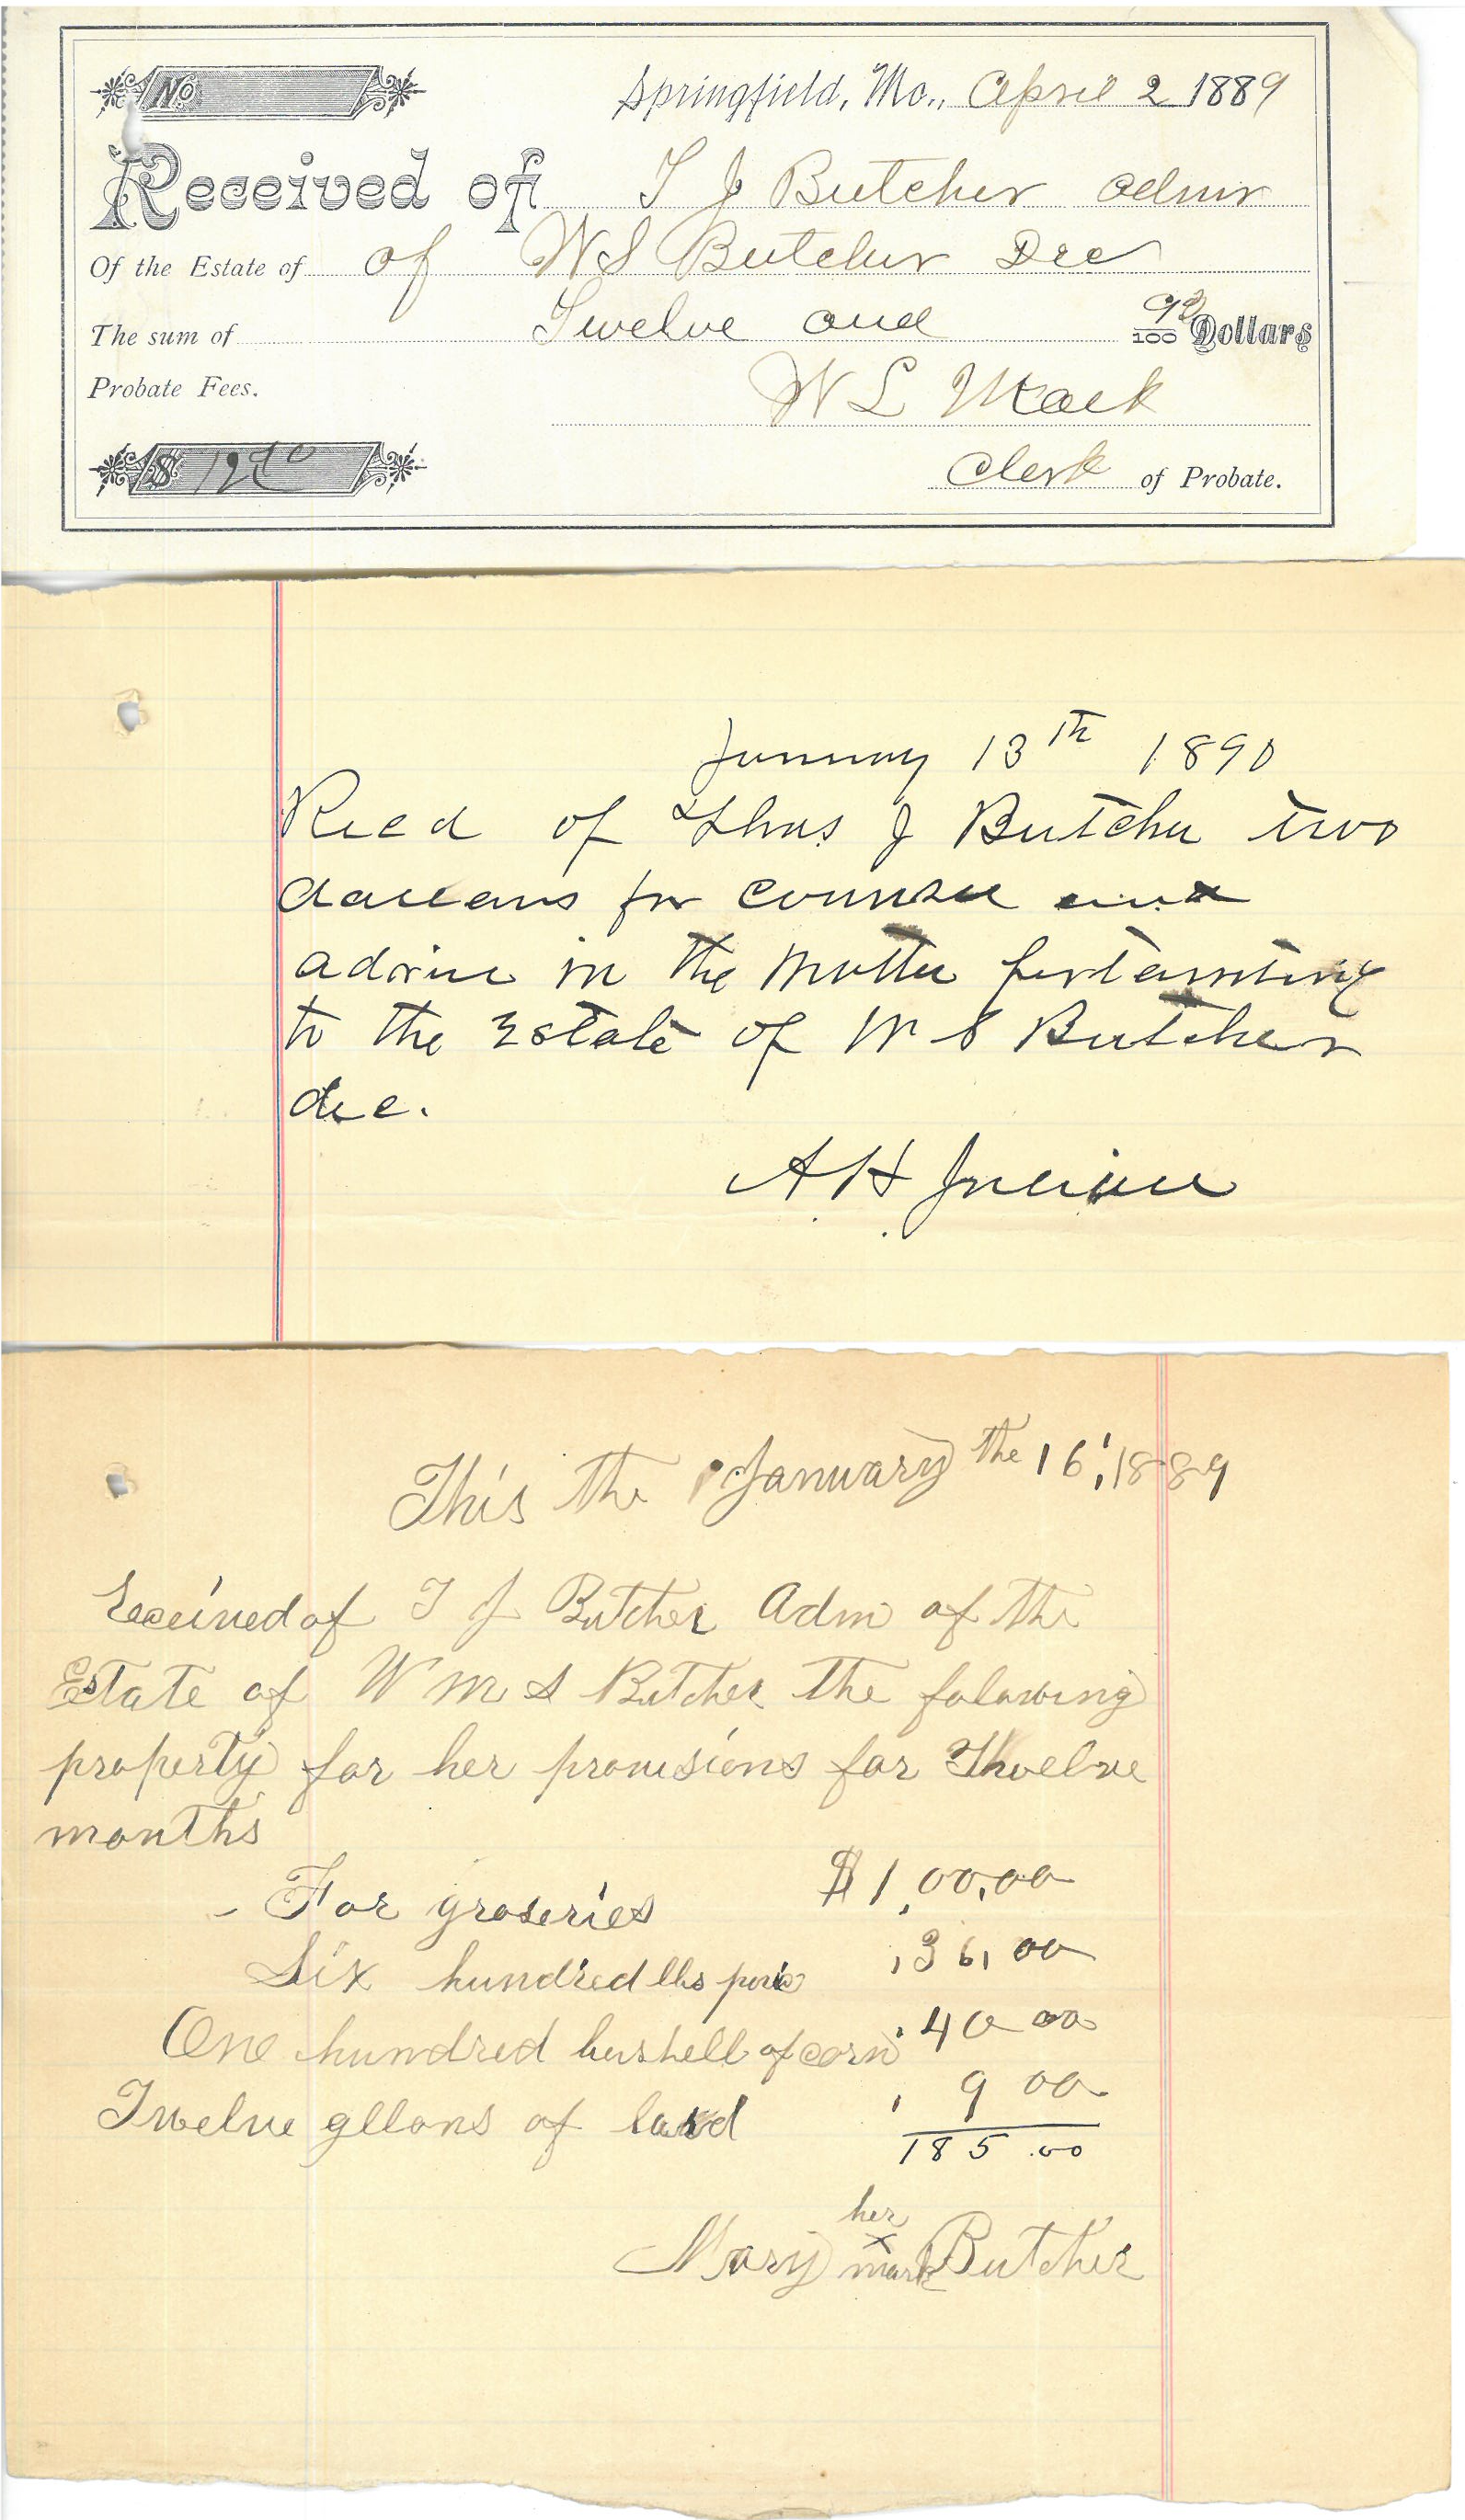 No.
Springfield, Mo., April 2 1889
Received of T J Butcher admr
Of the Estate of of W S Butcher Dec
The sum of Twelve and 90/100 Dollars
Probate Fees.
W L Mack
$ 12 90
Clerk of Probate.
January 13th 1890
Recd of Thos J Butcher two
dollars for counsel and
advice in the matter pertaining
to the Estate of W S Butcher
dec.
A H Julian
This the January the 16, 1889
Received of T J Butcher Adm of the
Estate of W M S Butcher the folowing
property for her provisions for Thwelve
months
For groseries $1,00,00
Six hundred lbs pork 36,00
One hundred bushell of corn 40 00
Twelve gllons of lard 9 00
185.00
her
Mary x Butcher
mark